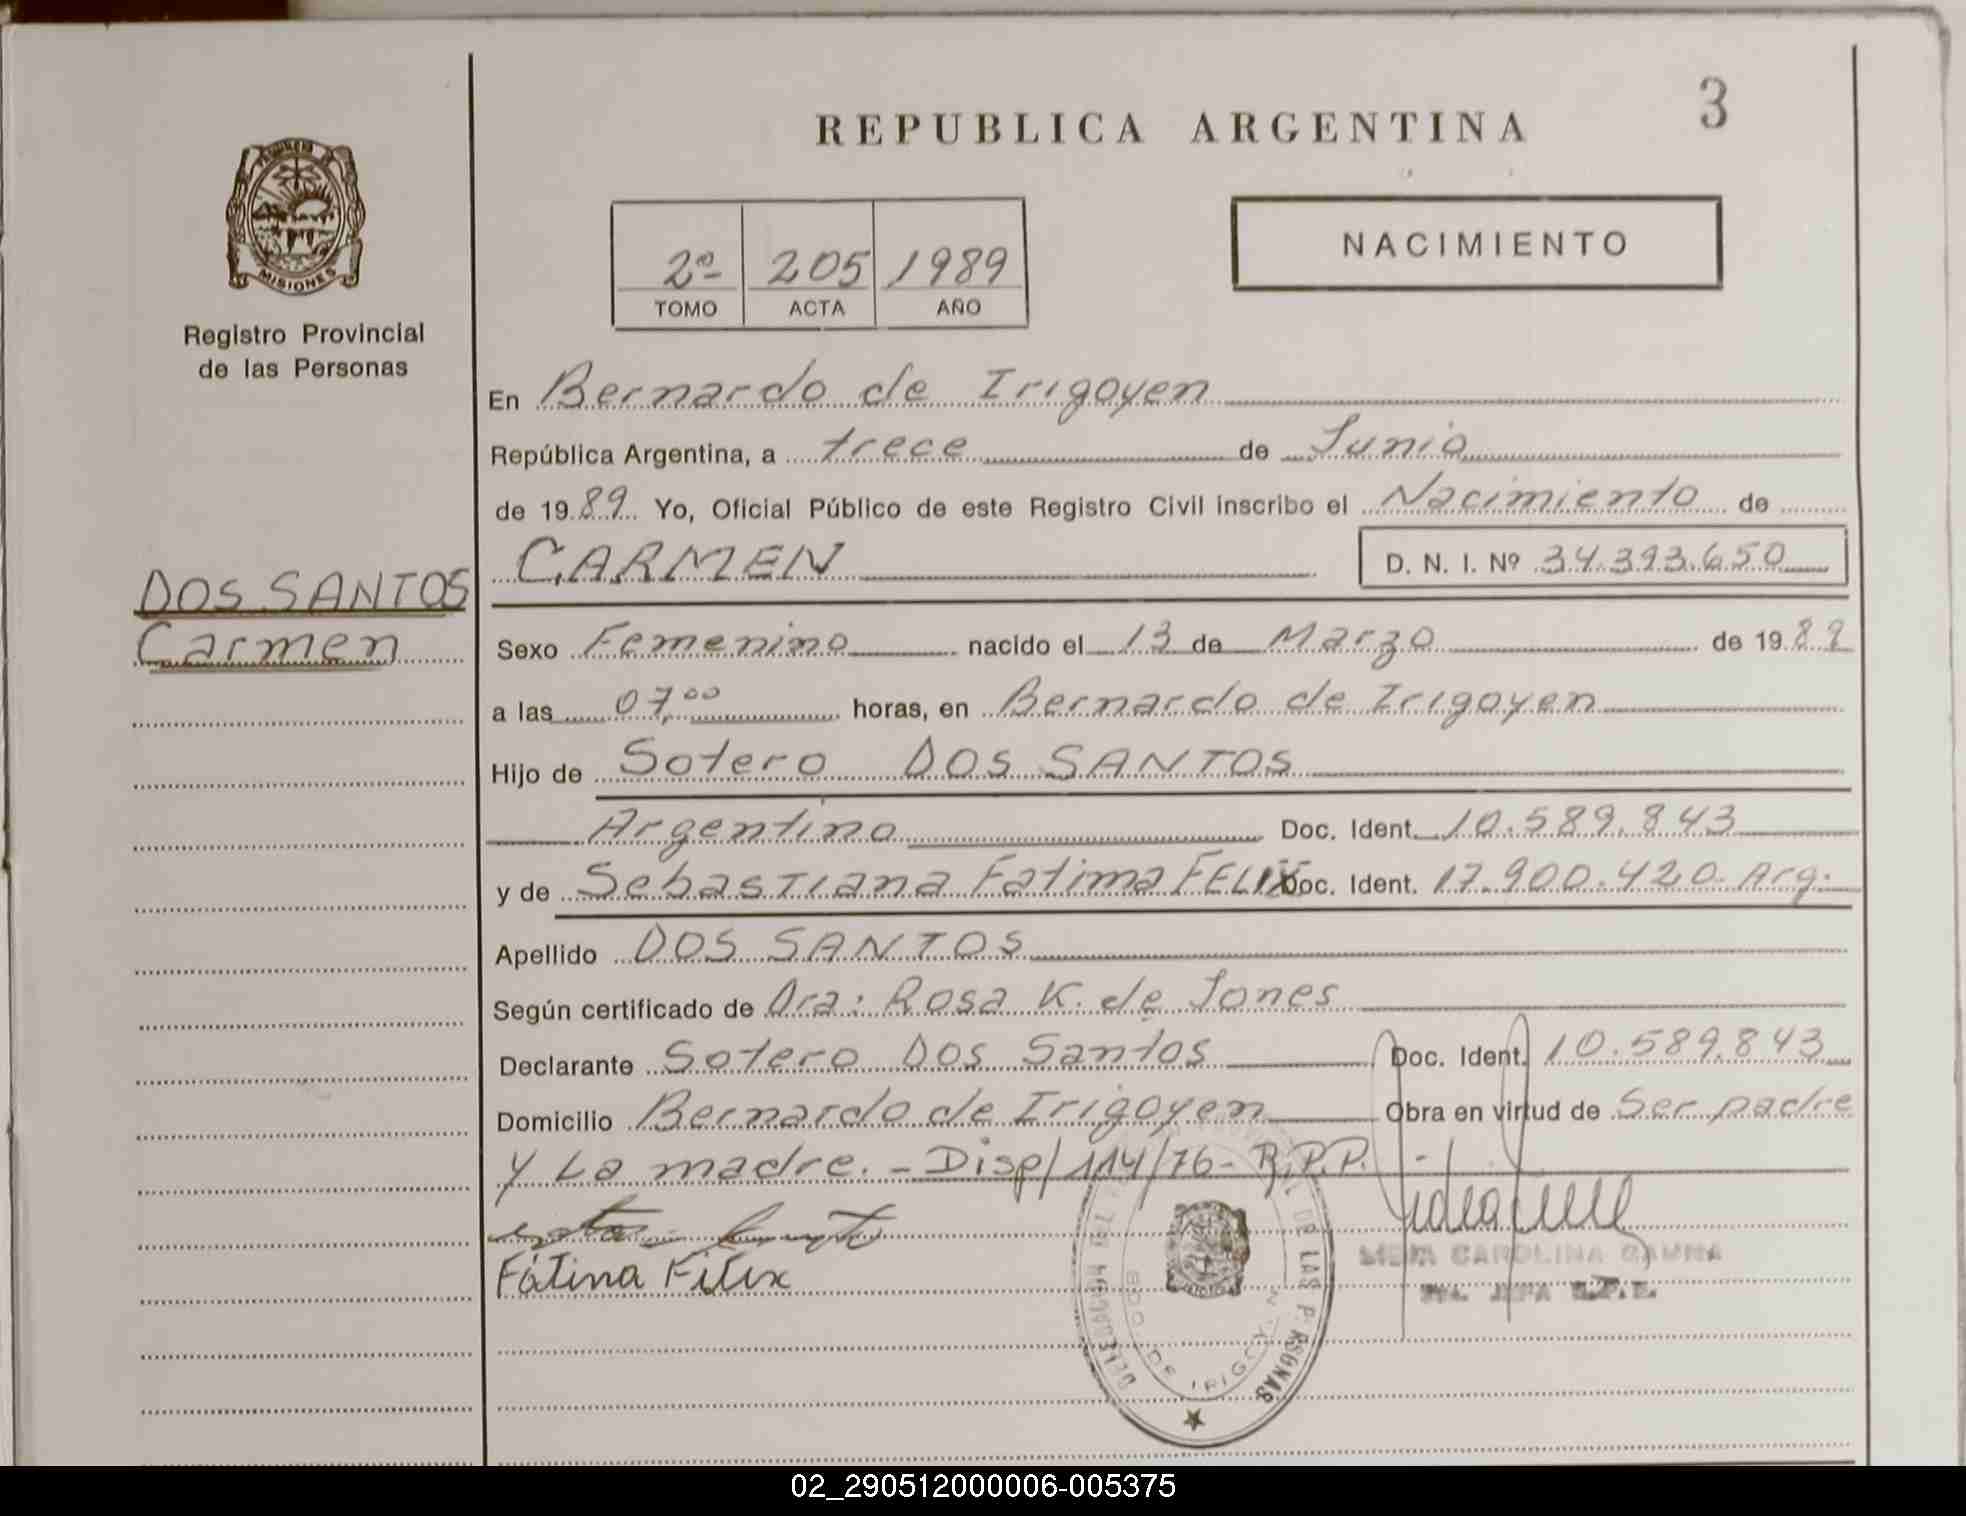 3
REPUBLICA ARGENTINA
NACIMIENTO
2º 205 1989
TOMO ACTA AÑO
PROVINCIA DE
MISIONES
Registro Provincial
de las Personas
DOS SANTOS
Carmen
En Bernardo de Irigoyen
República Argentina, a trece de Junio
de 1989 Yo, Oficial Público de este Registro Civil inscribo el Nacimiento de
CARMEN D. N. I. Nº 34.393.650
Sexo Femenino nacido el 13 de Marzo de 1989
a las 07,00 horas, en Bernardo de Irigoyen
Hijo de Sotero DOS SANTOS
Argentino Doc. Ident. 10.589.843
y de Sebastiana Fatima FELIX Doc. Ident. 17.900.420. Arg.
Apellido DOS SANTOS
Según certificado de Dra: Rosa K. de Jones
Declarante Sotero Dos Santos Doc. Ident. 10.589.843
Domicilio Bernardo de Irigoyen Obra en virtud de Ser padre
y La madre. - Disp/ 114/76 - R.P.P. -
Fátina Filix
DE LAS PERSONAS
BDO. DE IRIGOYEN
CAROLINA
02_290512000006-005375